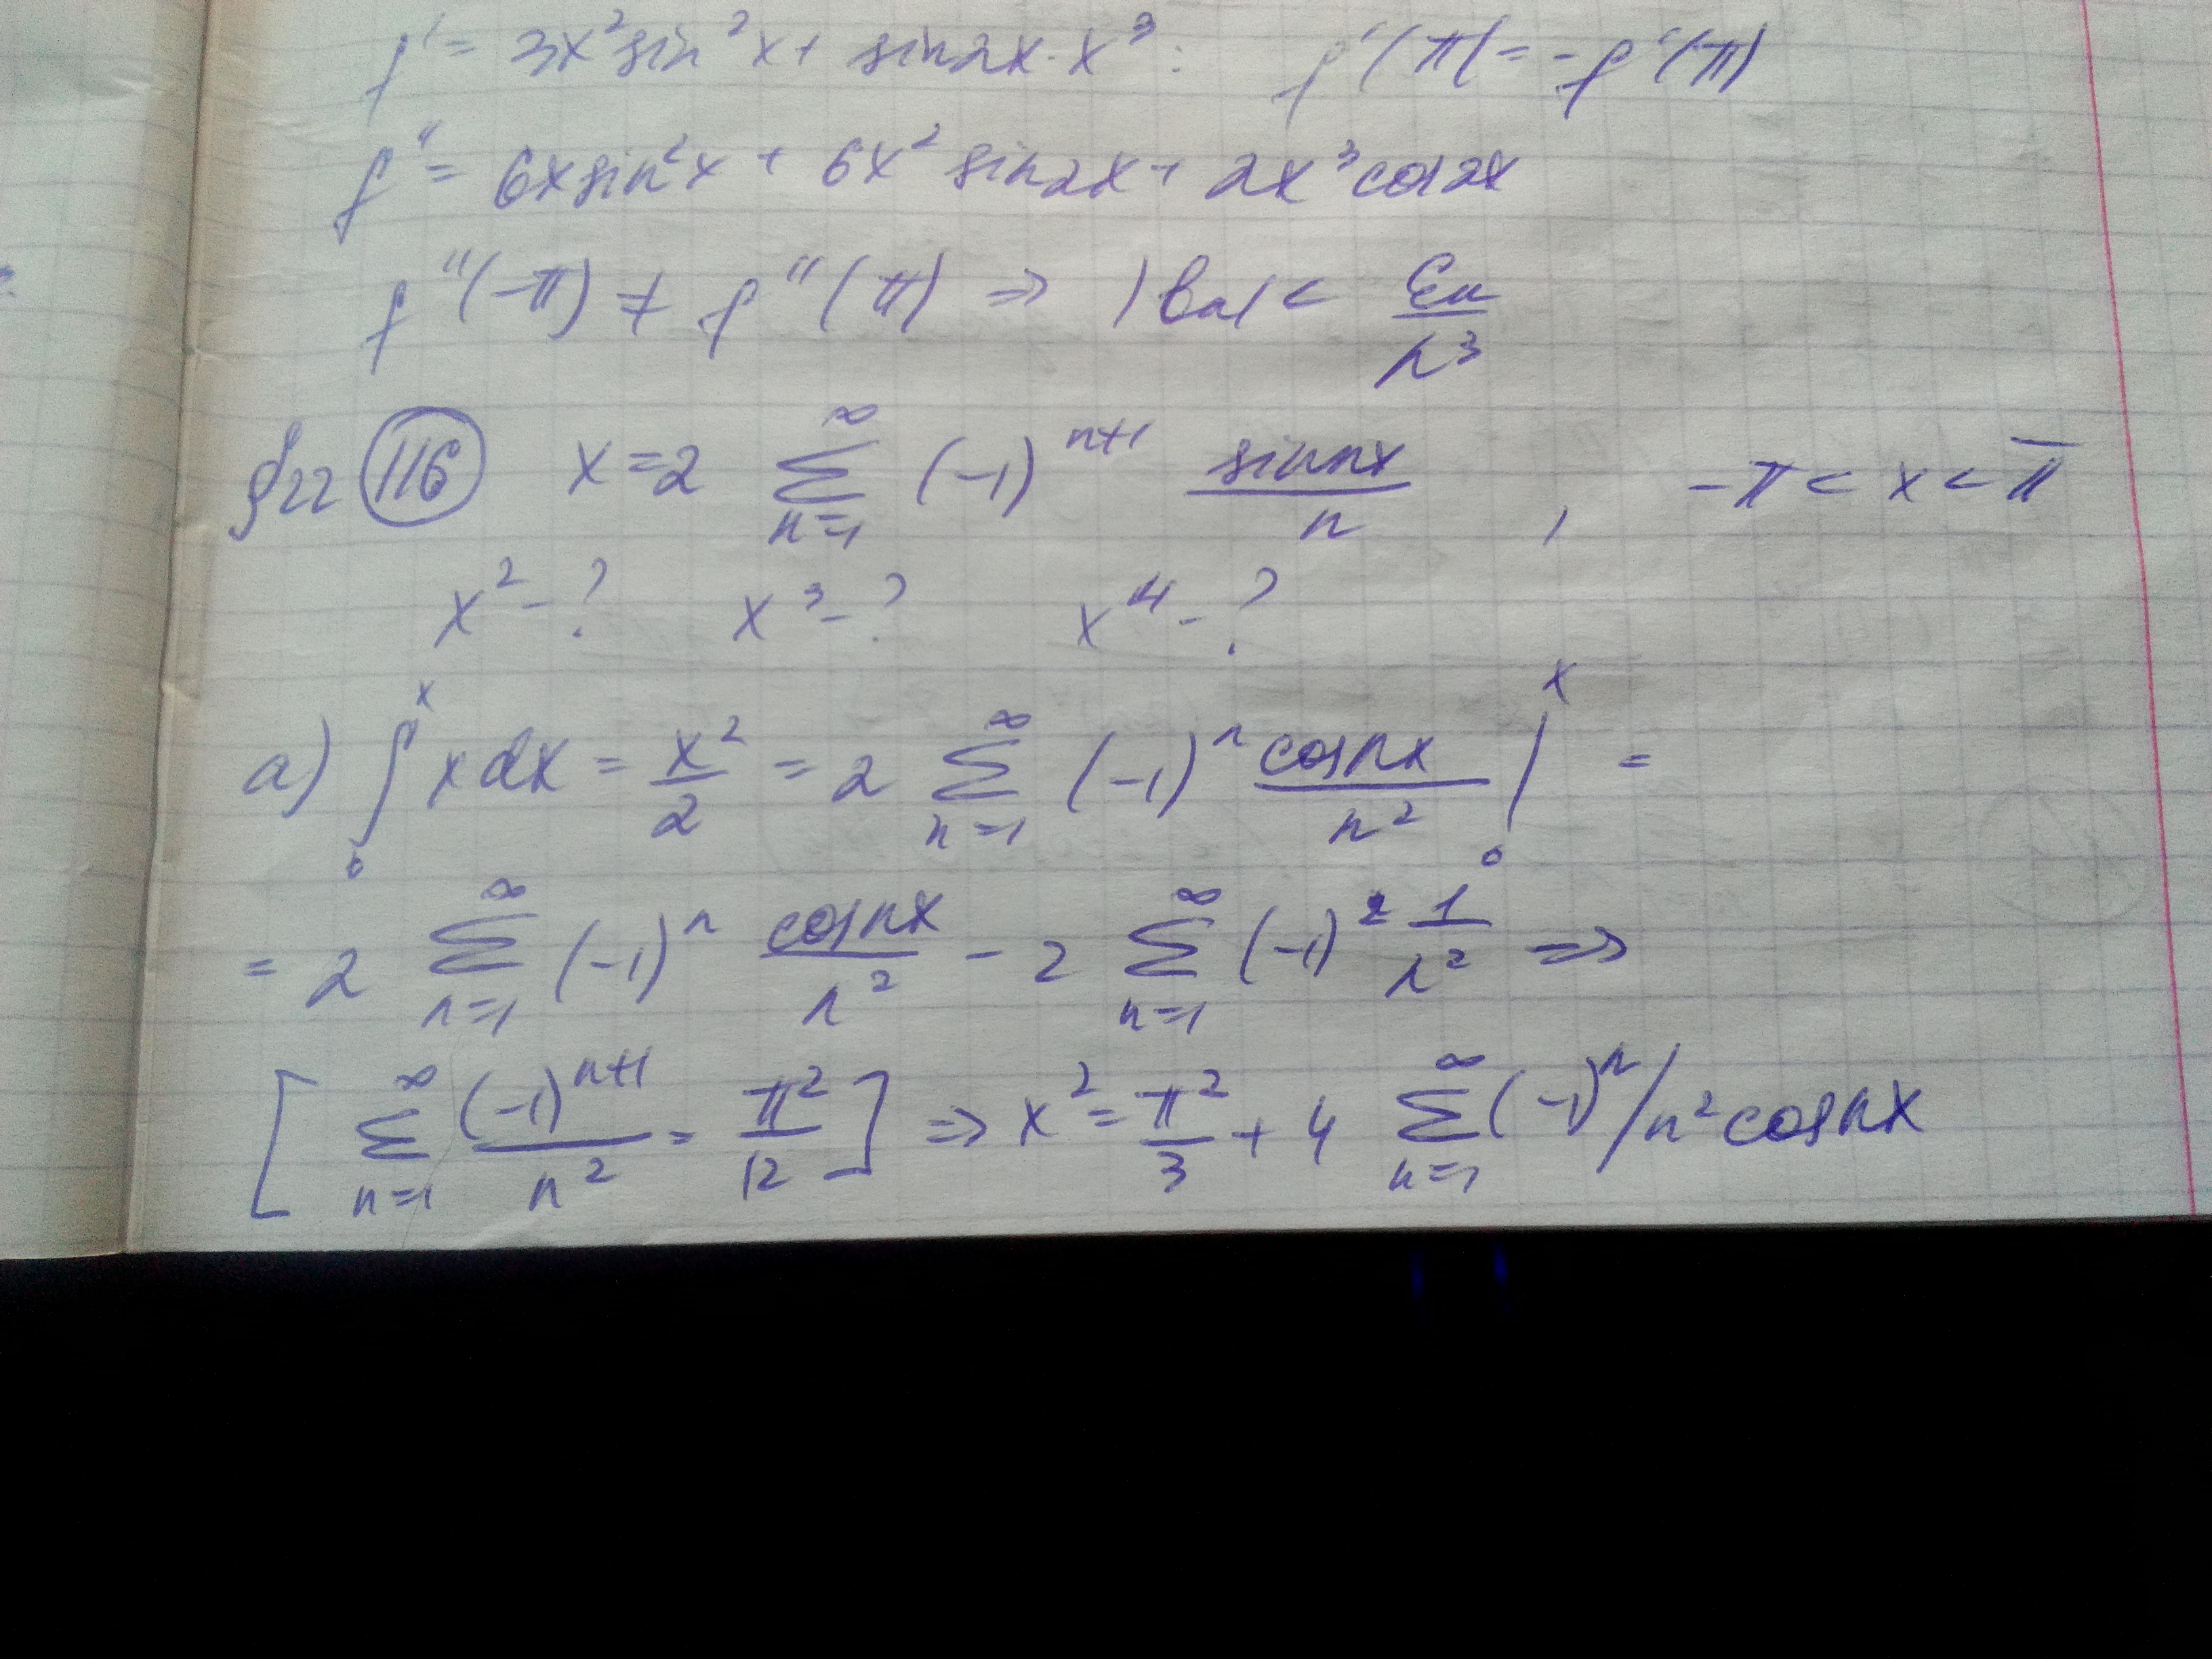 f' = 3x² sin² x + sin 2x · x³ : f'(π) = -f'(π)
f'' = 6x sin² x + 6x² sin 2x + 2x³ cos 2x
f''(-π) ≠ f''(π) ⇒ |bn| < εn/n³
§22 (116) x = 2 ∑_{n=1}^{∞} (-1)^{n+1} sin nx / n , -π < x < π
x² - ? x³ - ? x⁴ - ?
a) ∫_0^x x dx = x²/2 = 2 ∑_{n=1}^{∞} (-1)^n cos nx / n² |_0^x =
= 2 ∑_{n=1}^{∞} (-1)^n cos nx / n² - 2 ∑_{n=1}^{∞} (-1)^2 1/n² ⇒
[ ∑_{n=1}^{∞} (-1)^{n+1} / n² = π²/12 ] ⇒ x² = π²/3 + 4 ∑_{n=1}^{∞} (-1)^n / n² cos nx